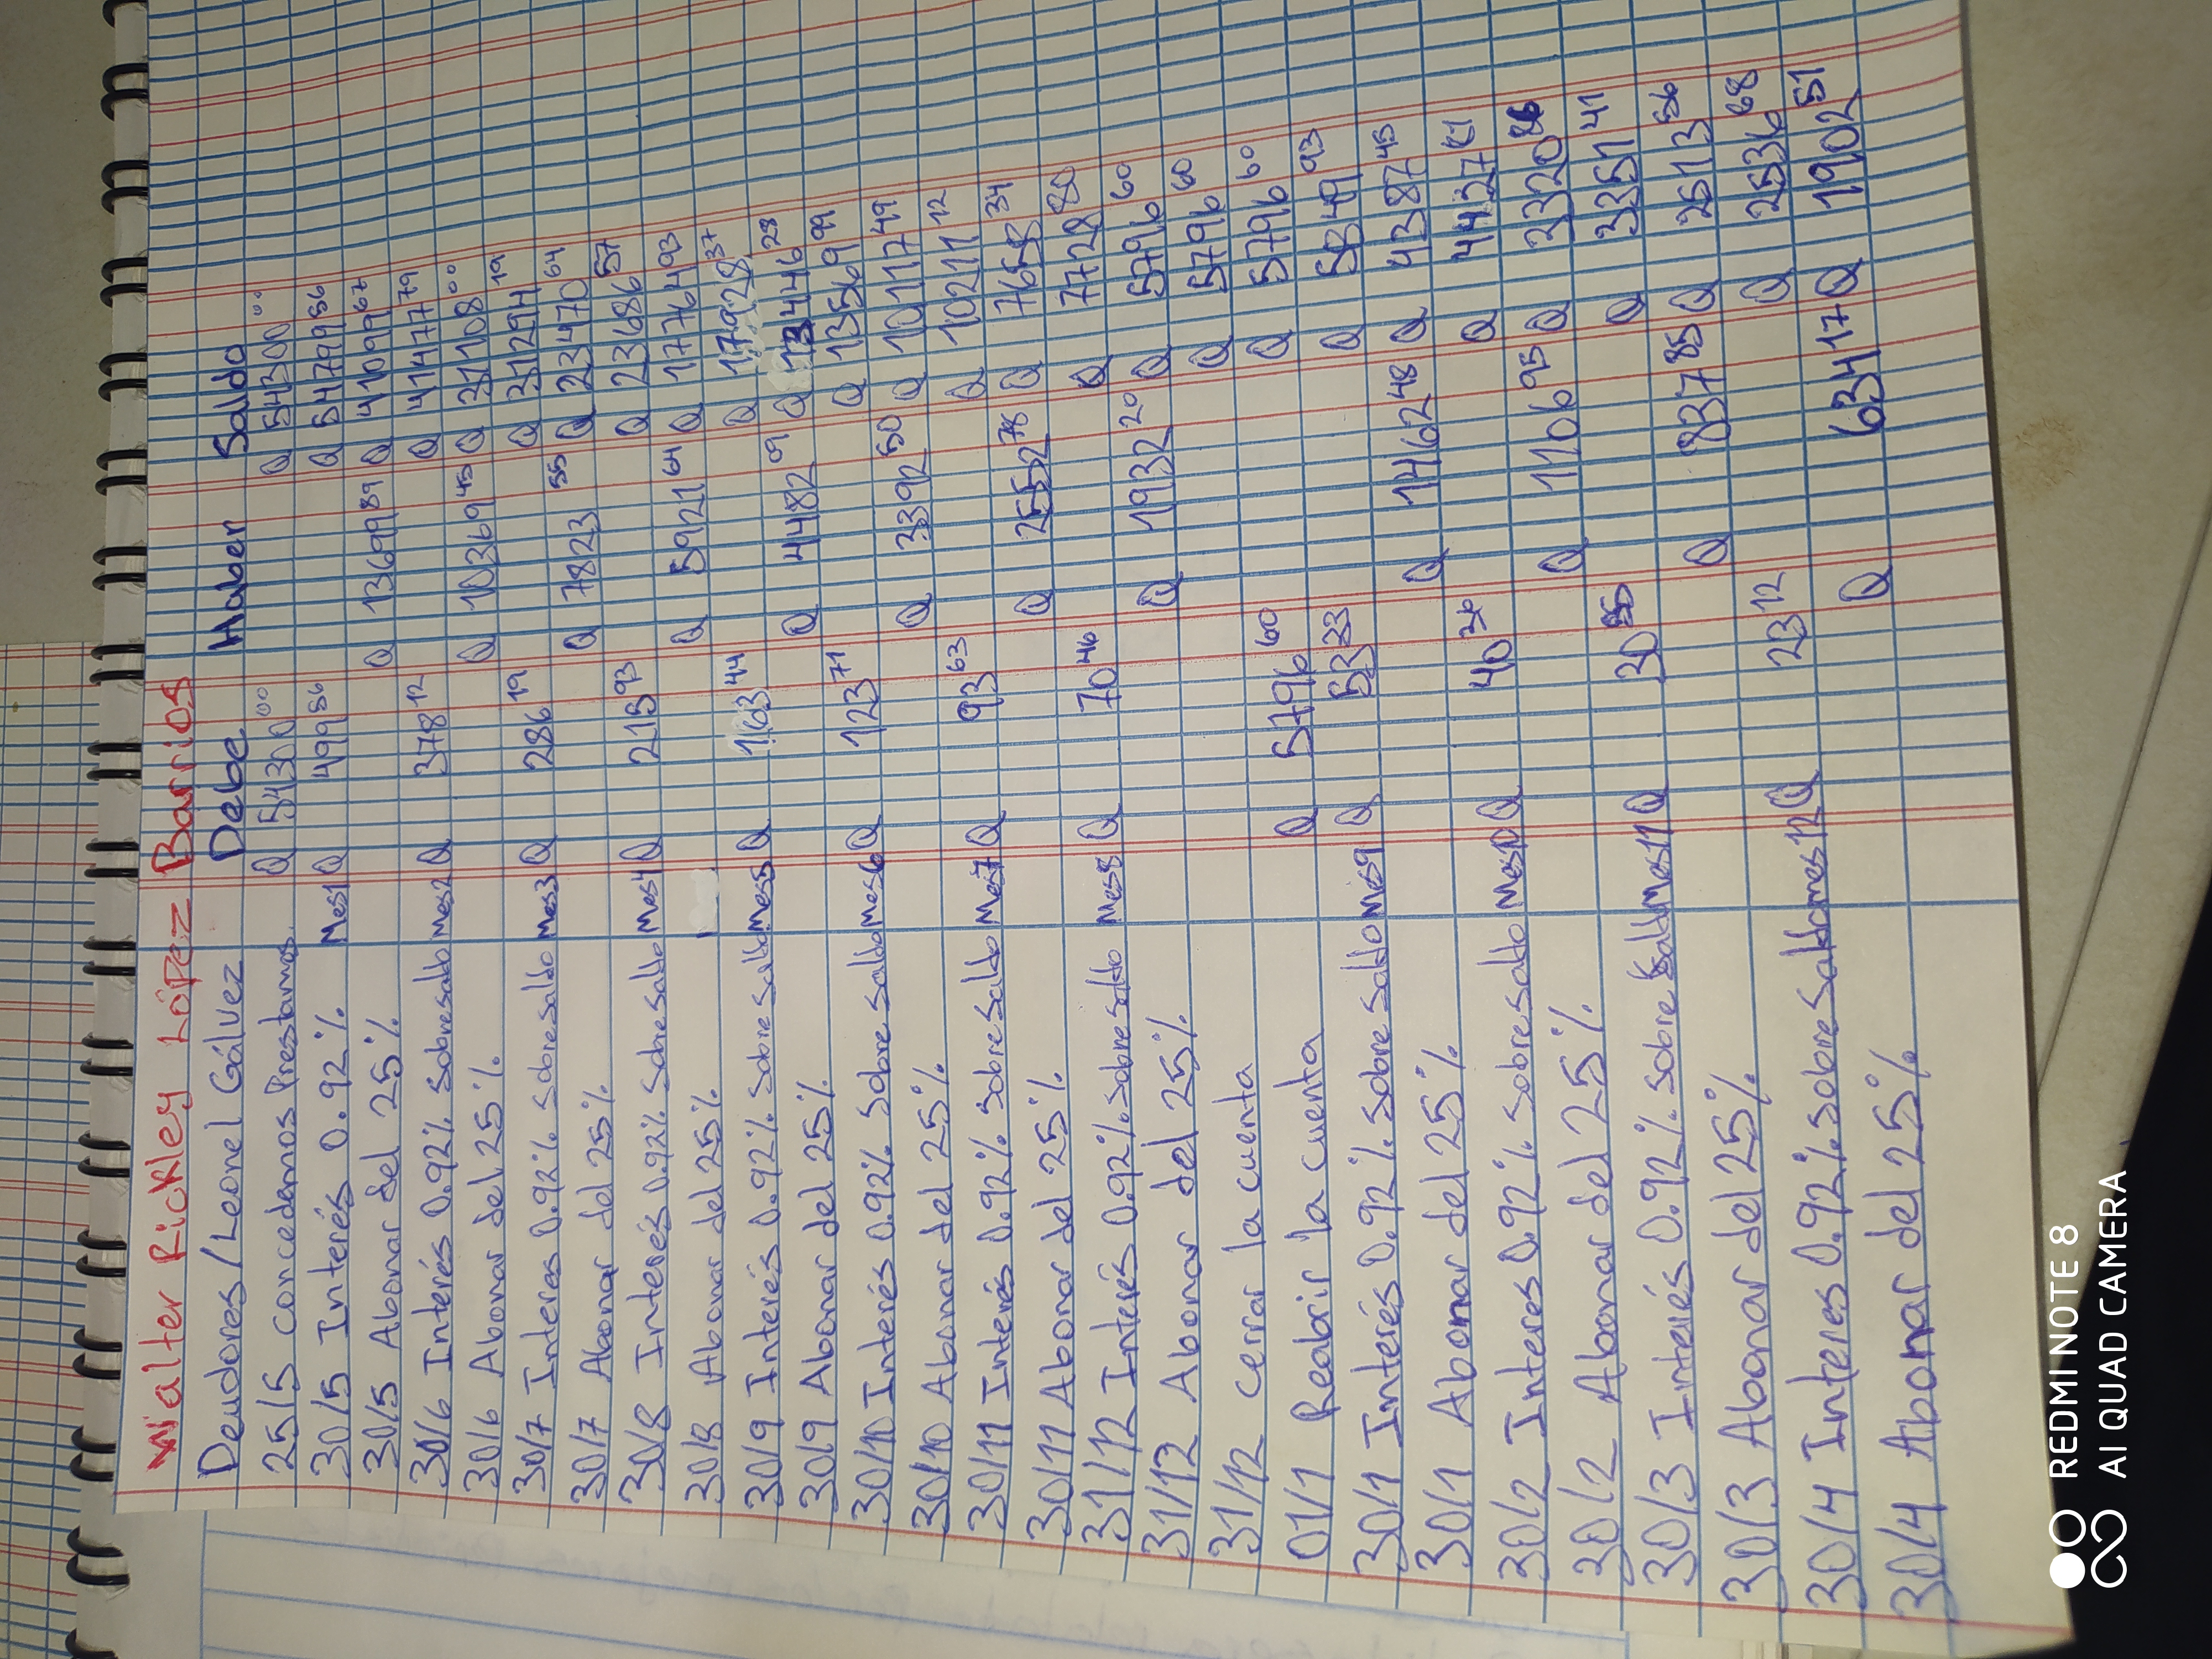 Walter Rickley López Barrios
Deudores/Leonel Gálvez Debe Haber Saldo
25/5 Concedemos Prestamos Q 54300 00 Q 54300 00
30/5 Interés 0.92% Mes1 Q 499 56 Q 54799 56
30/5 Abonar del 25% Q 13699 89 Q 41099 67
30/6 Interés 0.92% sobre saldo Mes2 Q 378 12 Q 41477 79
30/6 Abonar del 25% Q 10369 45 Q 31108 00
30/7 Interes 0.92% sobre saldo Mes3 Q 286 19 Q 31294 19
30/7 Abonar del 25% Q 7823 55 Q 23470 64
30/8 Interés 0.92% sobre saldo Mes4 Q 215 93 Q 23686 57
30/8 Abonar del 25% Q 5921 64 Q 17764 93
30/9 Interés 0.92% sobre saldo Mes5 Q 163 44 Q 17928 37
30/9 Abonar del 25% Q 4482 09 Q 13446 28
30/10 Interés 0.92% sobre saldo Mes6 Q 123 71 Q 13569 99
30/10 Abonar del 25% Q 3392 50 Q 10177 49
30/11 Interés 0.92% sobre saldo Mes7 Q 93 63 Q 10211 12
30/11 Abonar del 25% Q 2552 78 Q 7658 34
31/12 Interés 0.92% sobre saldo Mes8 Q 70 46 Q 7728 80
31/12 Abonar del 25% Q 1932 20 Q 5796 60
31/12 Cerrar la cuenta Q 5796 60
01/1 Reabrir la cuenta Q 5796 60 Q 5796 60
30/1 Interés 0.92% sobre saldo Mes9 Q 53 33 Q 5849 93
30/1 Abonar del 25% Q 1462 48 Q 4387 45
30/2 Interes 0.92% sobre saldo Mes10 Q 40 36 Q 4427
30/2 Abonar del 25% Q 1106 95 Q 3320 86
30/3 Interés 0.92% sobre saldo Mes11 Q 30 55 Q 3351 41
30/3 Abonar del 25% Q 837 85 Q 2513 56
30/4 Interes 0.92% sobre saldo mes12 Q 23 12 Q 2536 68
30/4 Abonar del 25% Q 634 17 Q 1902 51
REDMI NOTE 8
AI QUAD CAMERA